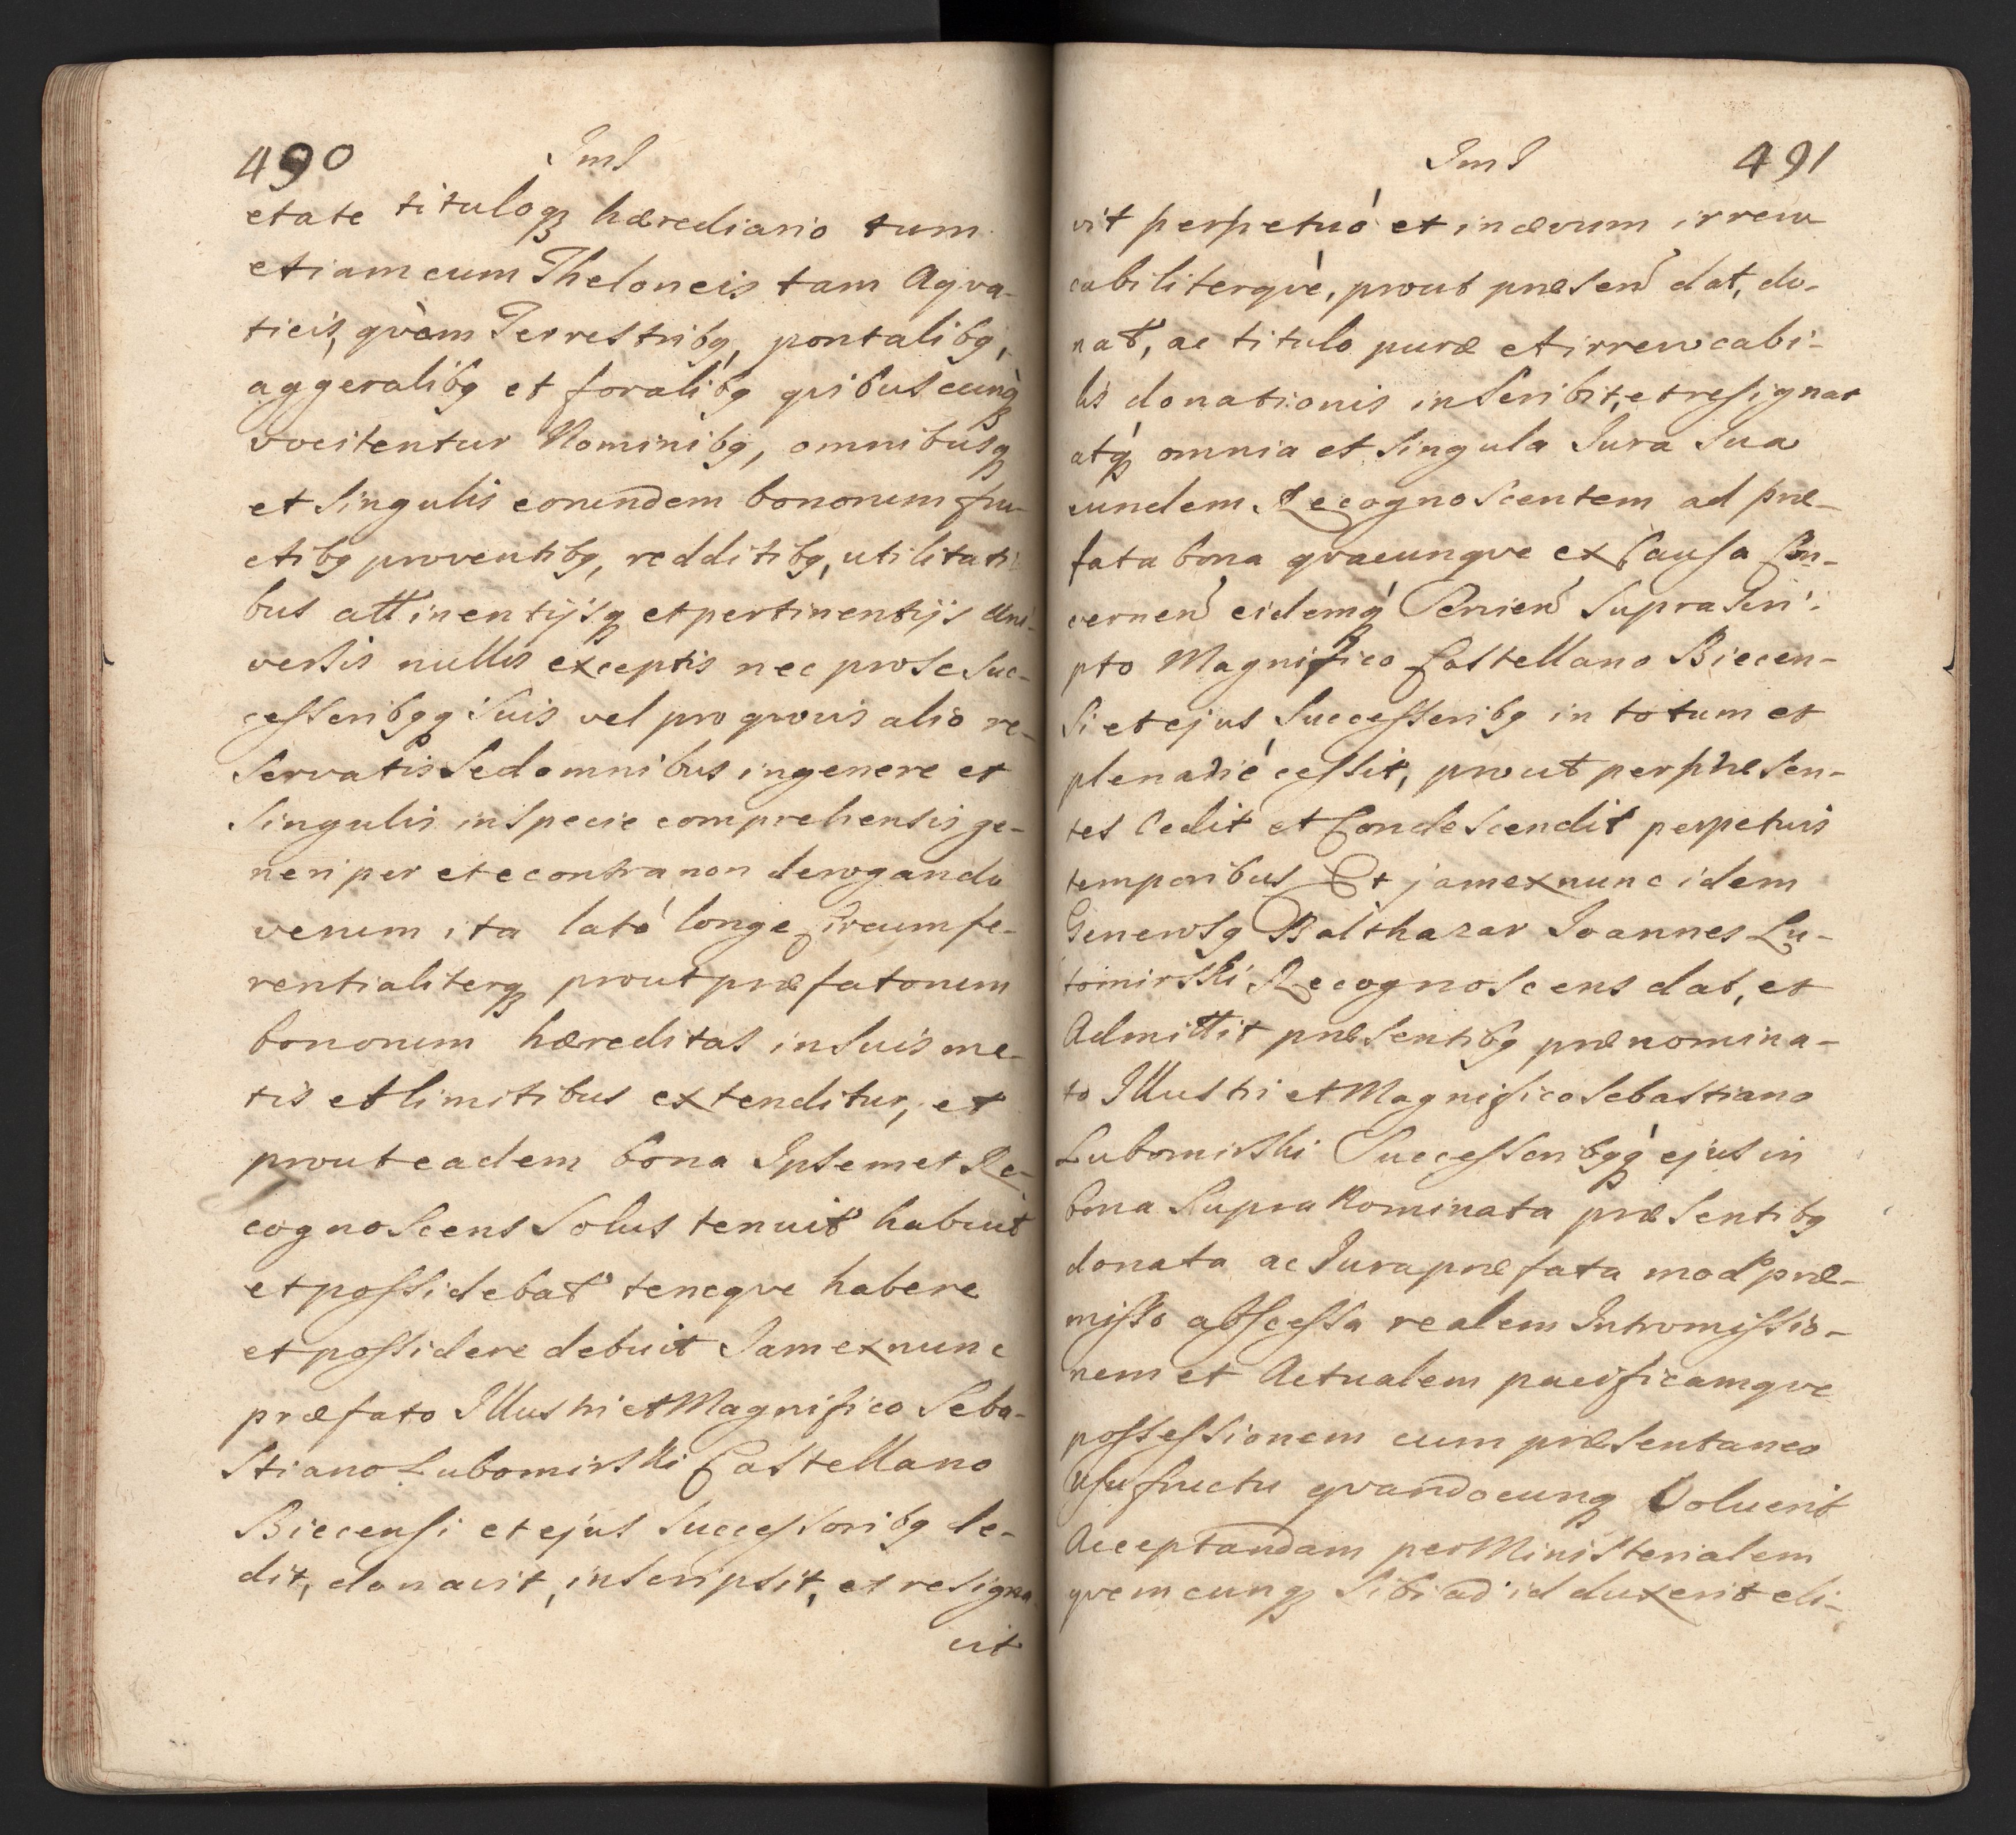 490 Ins
etate tituloqꝫ hærediario tum
etiam cum Theloneis tam Aqva-
ticis, qvàm Terrestribꝫ, pontalibꝫ,
aggeralibꝫ et foralibꝫ qvibuscunqꝫ
vocitentur Nominibꝫ, omnibusqꝫ
et Singulis eorundem bonorum fru-
ctibꝫ proventibꝫ, redditibꝫ, utilitati
bus attinentijsqꝫ et pertinentijs Uni-
versis nullis exceptis nec pro se Suc-
cessoribꝫqꝫ Suis vel pro qvovis alio re-
Servatis Sed omnibus in genere et
Singulis in Specie comprehensis ge-
neri per et econtra non derogando
verum ita latò longe Circumfe-
rentialiterqꝫ prout præfatorum
bonorum hæreditas in Suis me-
tis et limitibus extenditur, et
prout eadem bona Ipsemet Re-
cognoscens Solus tenuit habuit
et possidebat teneqve habere
et possidere debuit Jam ex nunc
præfato Illustri et Magnifico Seba-
stiano Lubomirski Castellano
Biecensi et ejus Successoribꝫ de-
dit, donavit, inscripsit, et resigna-
vit
Ins 491
vit perpetuò et in ævum irrevo
cabiliterqvè, prout præsen dat, do-
nat, ac titulo puræ et irrevocabi-
lis donationis inscribit, et resignat
atqꝫ omnia et Singula Jura Sua
eundem Recognoscentem ad præ-
fata bona qvæcunqve ex Causa Con-
cernen eidemqꝫ Servien Supra Scri-
pto Magnifico Castellano Biecen-
si et ejus Successoribꝫ in totum et
plenariè cessit, prout per præsen-
tes Cedit et Condescendit perpetuis
temporibus Et jam ex nunc idem
Generosꝫ Balthazar Joannes Lu-
tomirski Recognoscens dat, et
Admittit præsentibꝫ prænomina-
to Illustri et Magnifico Sebastiano
Lubomirski Successoribꝫqꝫ ejus in
bona Supra Nominata præsentibꝫ
donata ac Jura præfata modo præ-
misso abscessa realem Intromissio-
nem et Actualem pacificamqve
possessionem cum præsentaneo
Usufructu qvandocunqꝫ Voluerit
Acceptandam per Ministerialem
qvemcunqꝫ Sibi ad id duxerit eli-